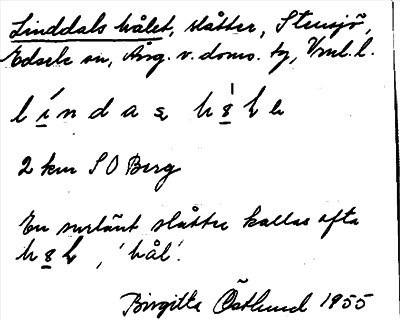 Linddals hålet, slåtter, Stensjö,
Edsele sn, Ång. v. doms. tg, Vnl. l.
2 km SO Berg
En surlänt slåtter kallas ofta
'hål'.
Birgitta Östlund 1955